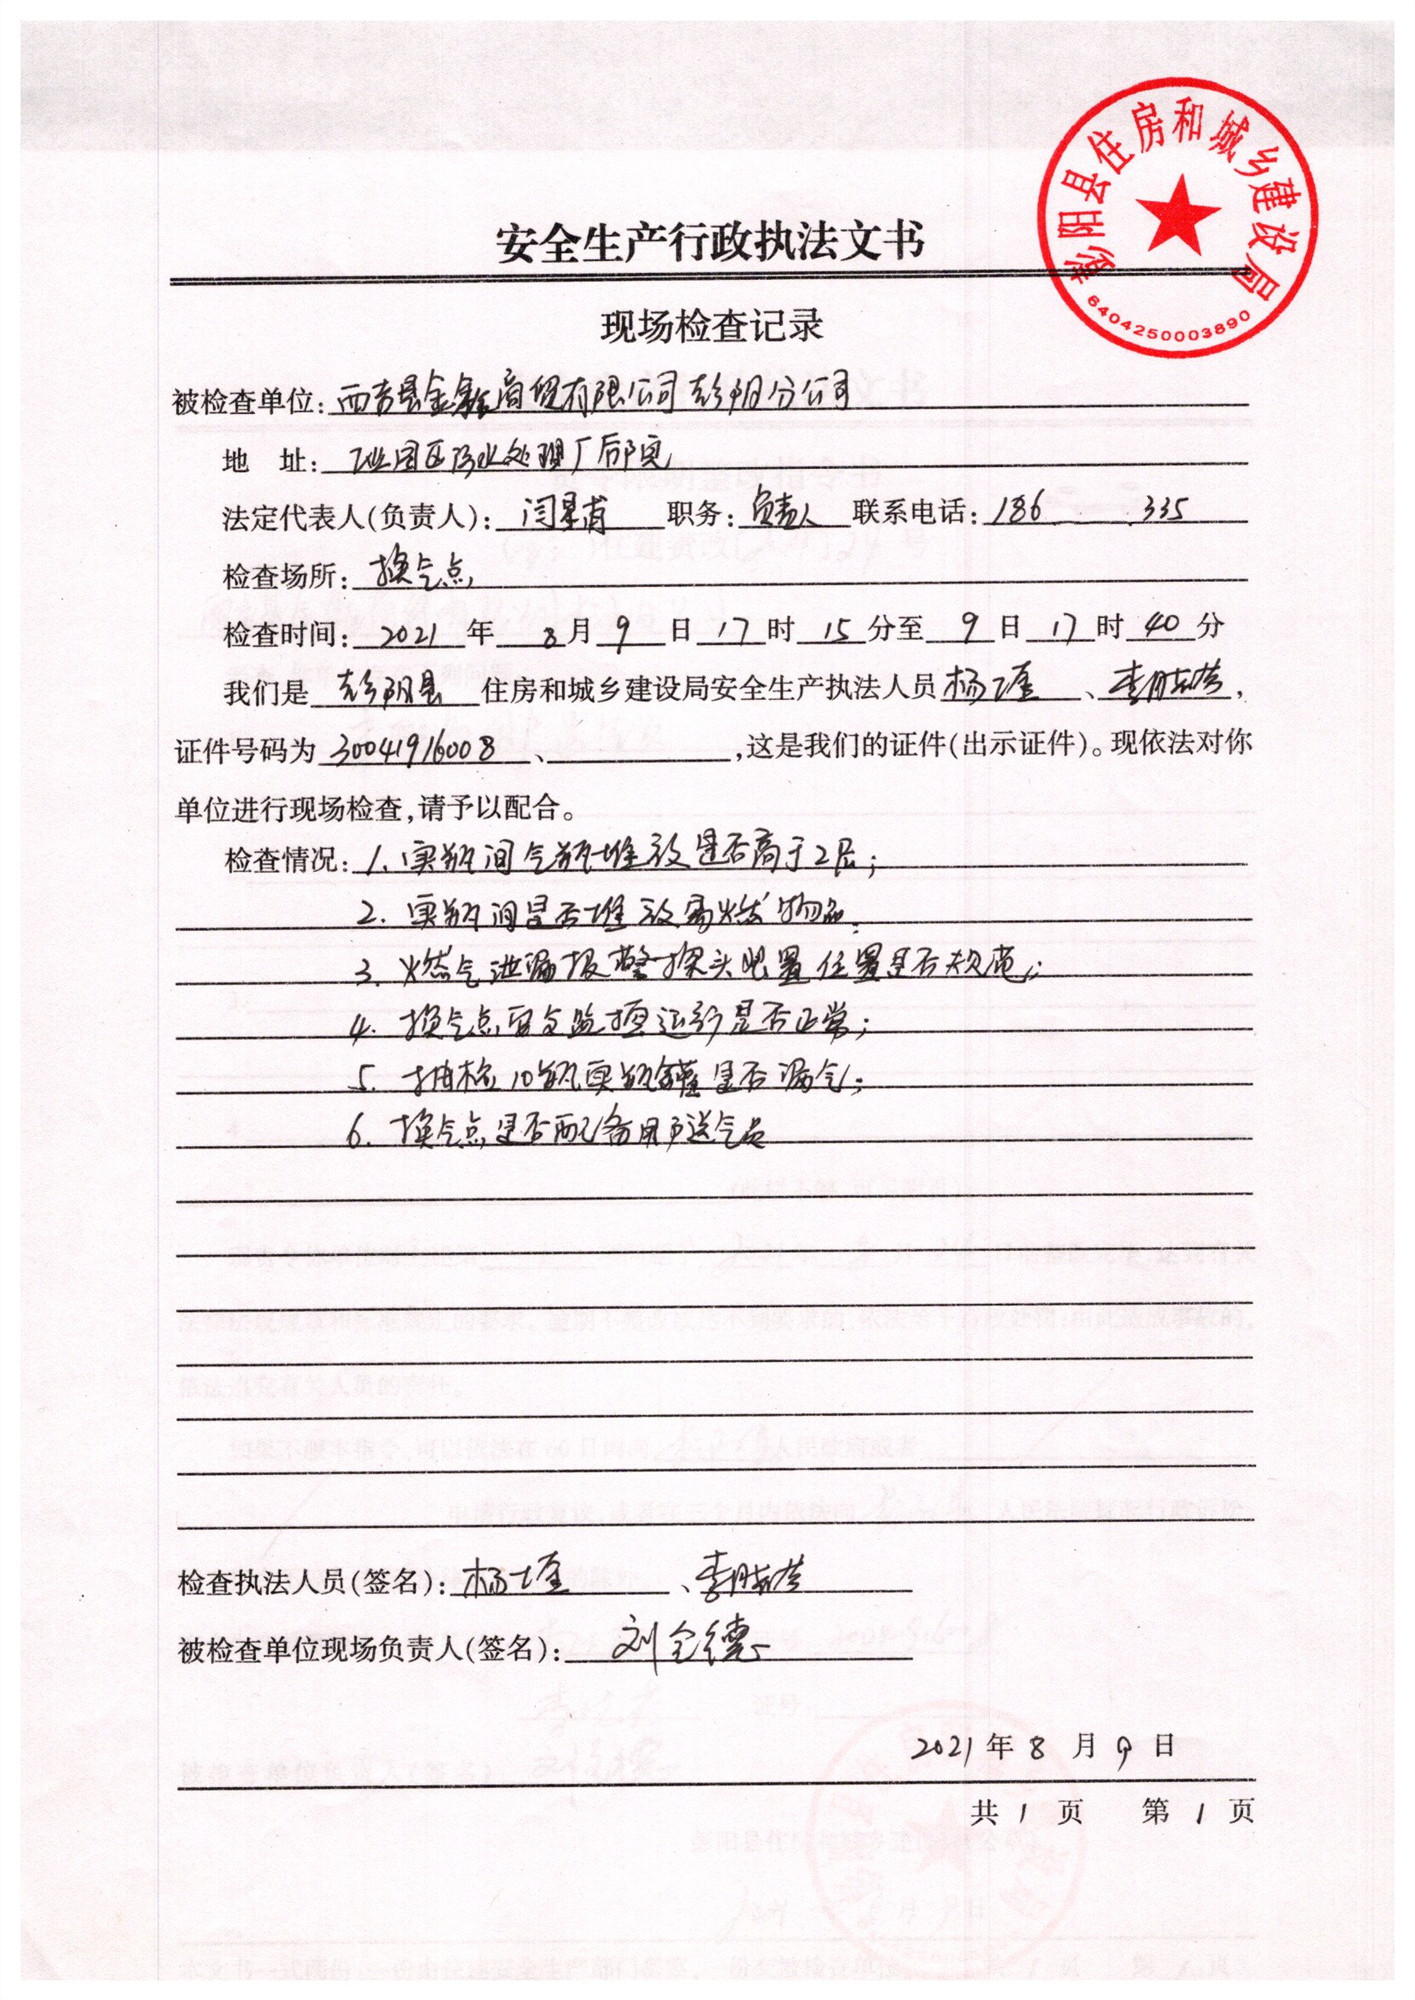 彭阳县住房和城乡建设局
6404250003890
安全生产行政执法文书
现场检查记录
被检查单位: 西吉县金鑫商贸有限公司彭阳分公司
地 址: 工业园区污水处理厂后院
法定代表人(负责人): 闫 职务: 负责人 联系电话: 186 335
检查场所: 换气点
检查时间: 2021 年 8 月 9 日 17 时 15 分至 9 日 17 时 40 分
我们是 彭阳县 住房和城乡建设局安全生产执法人员 杨 、李 ,
证件号码为 30041916008 、 ,这是我们的证件(出示证件)。现依法对你
单位进行现场检查,请予以配合。
检查情况: 1. 实瓶间气瓶堆放是否高于2层;
2. 实瓶间是否堆放易燃物品;
3. 燃气泄漏报警探头设置位置是否规范;
4. 换气点安全监控运行是否正常;
5. 抽检10瓶实瓶罐是否漏气;
6. 换气点是否配备用户送气员
检查执法人员(签名): 杨 、李
被检查单位现场负责人(签名): 刘全德
2021 年 8 月 9 日
共 1 页 第 1 页